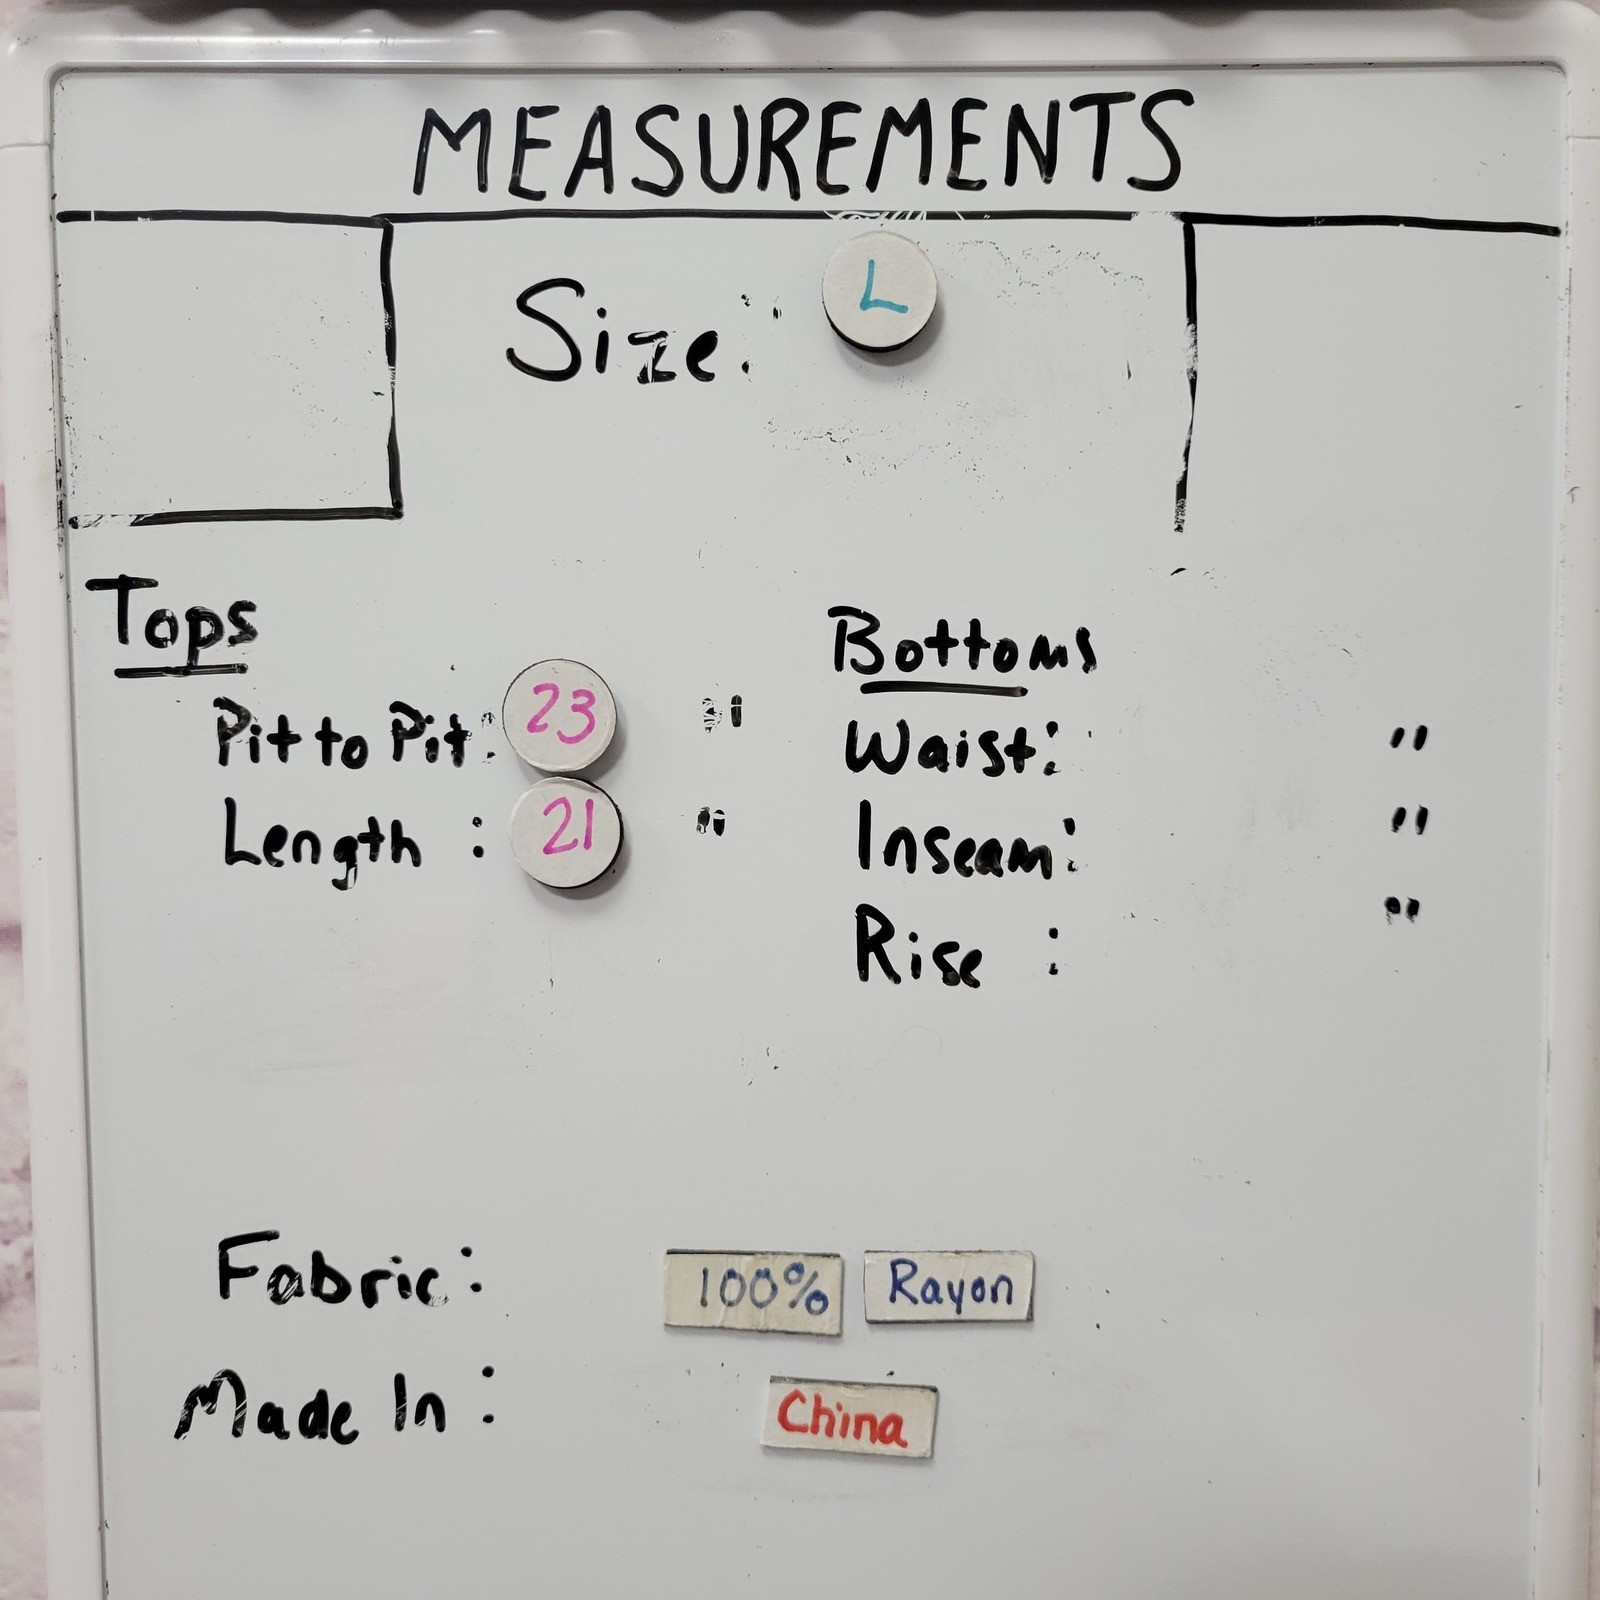 MEASUREMENTS
Size: L
Tops
Pit to Pit: 23 "
Length : 21 "
Bottoms
Waist: "
Inseam: "
Rise : "
Fabric: 100% Rayon
Made In: China